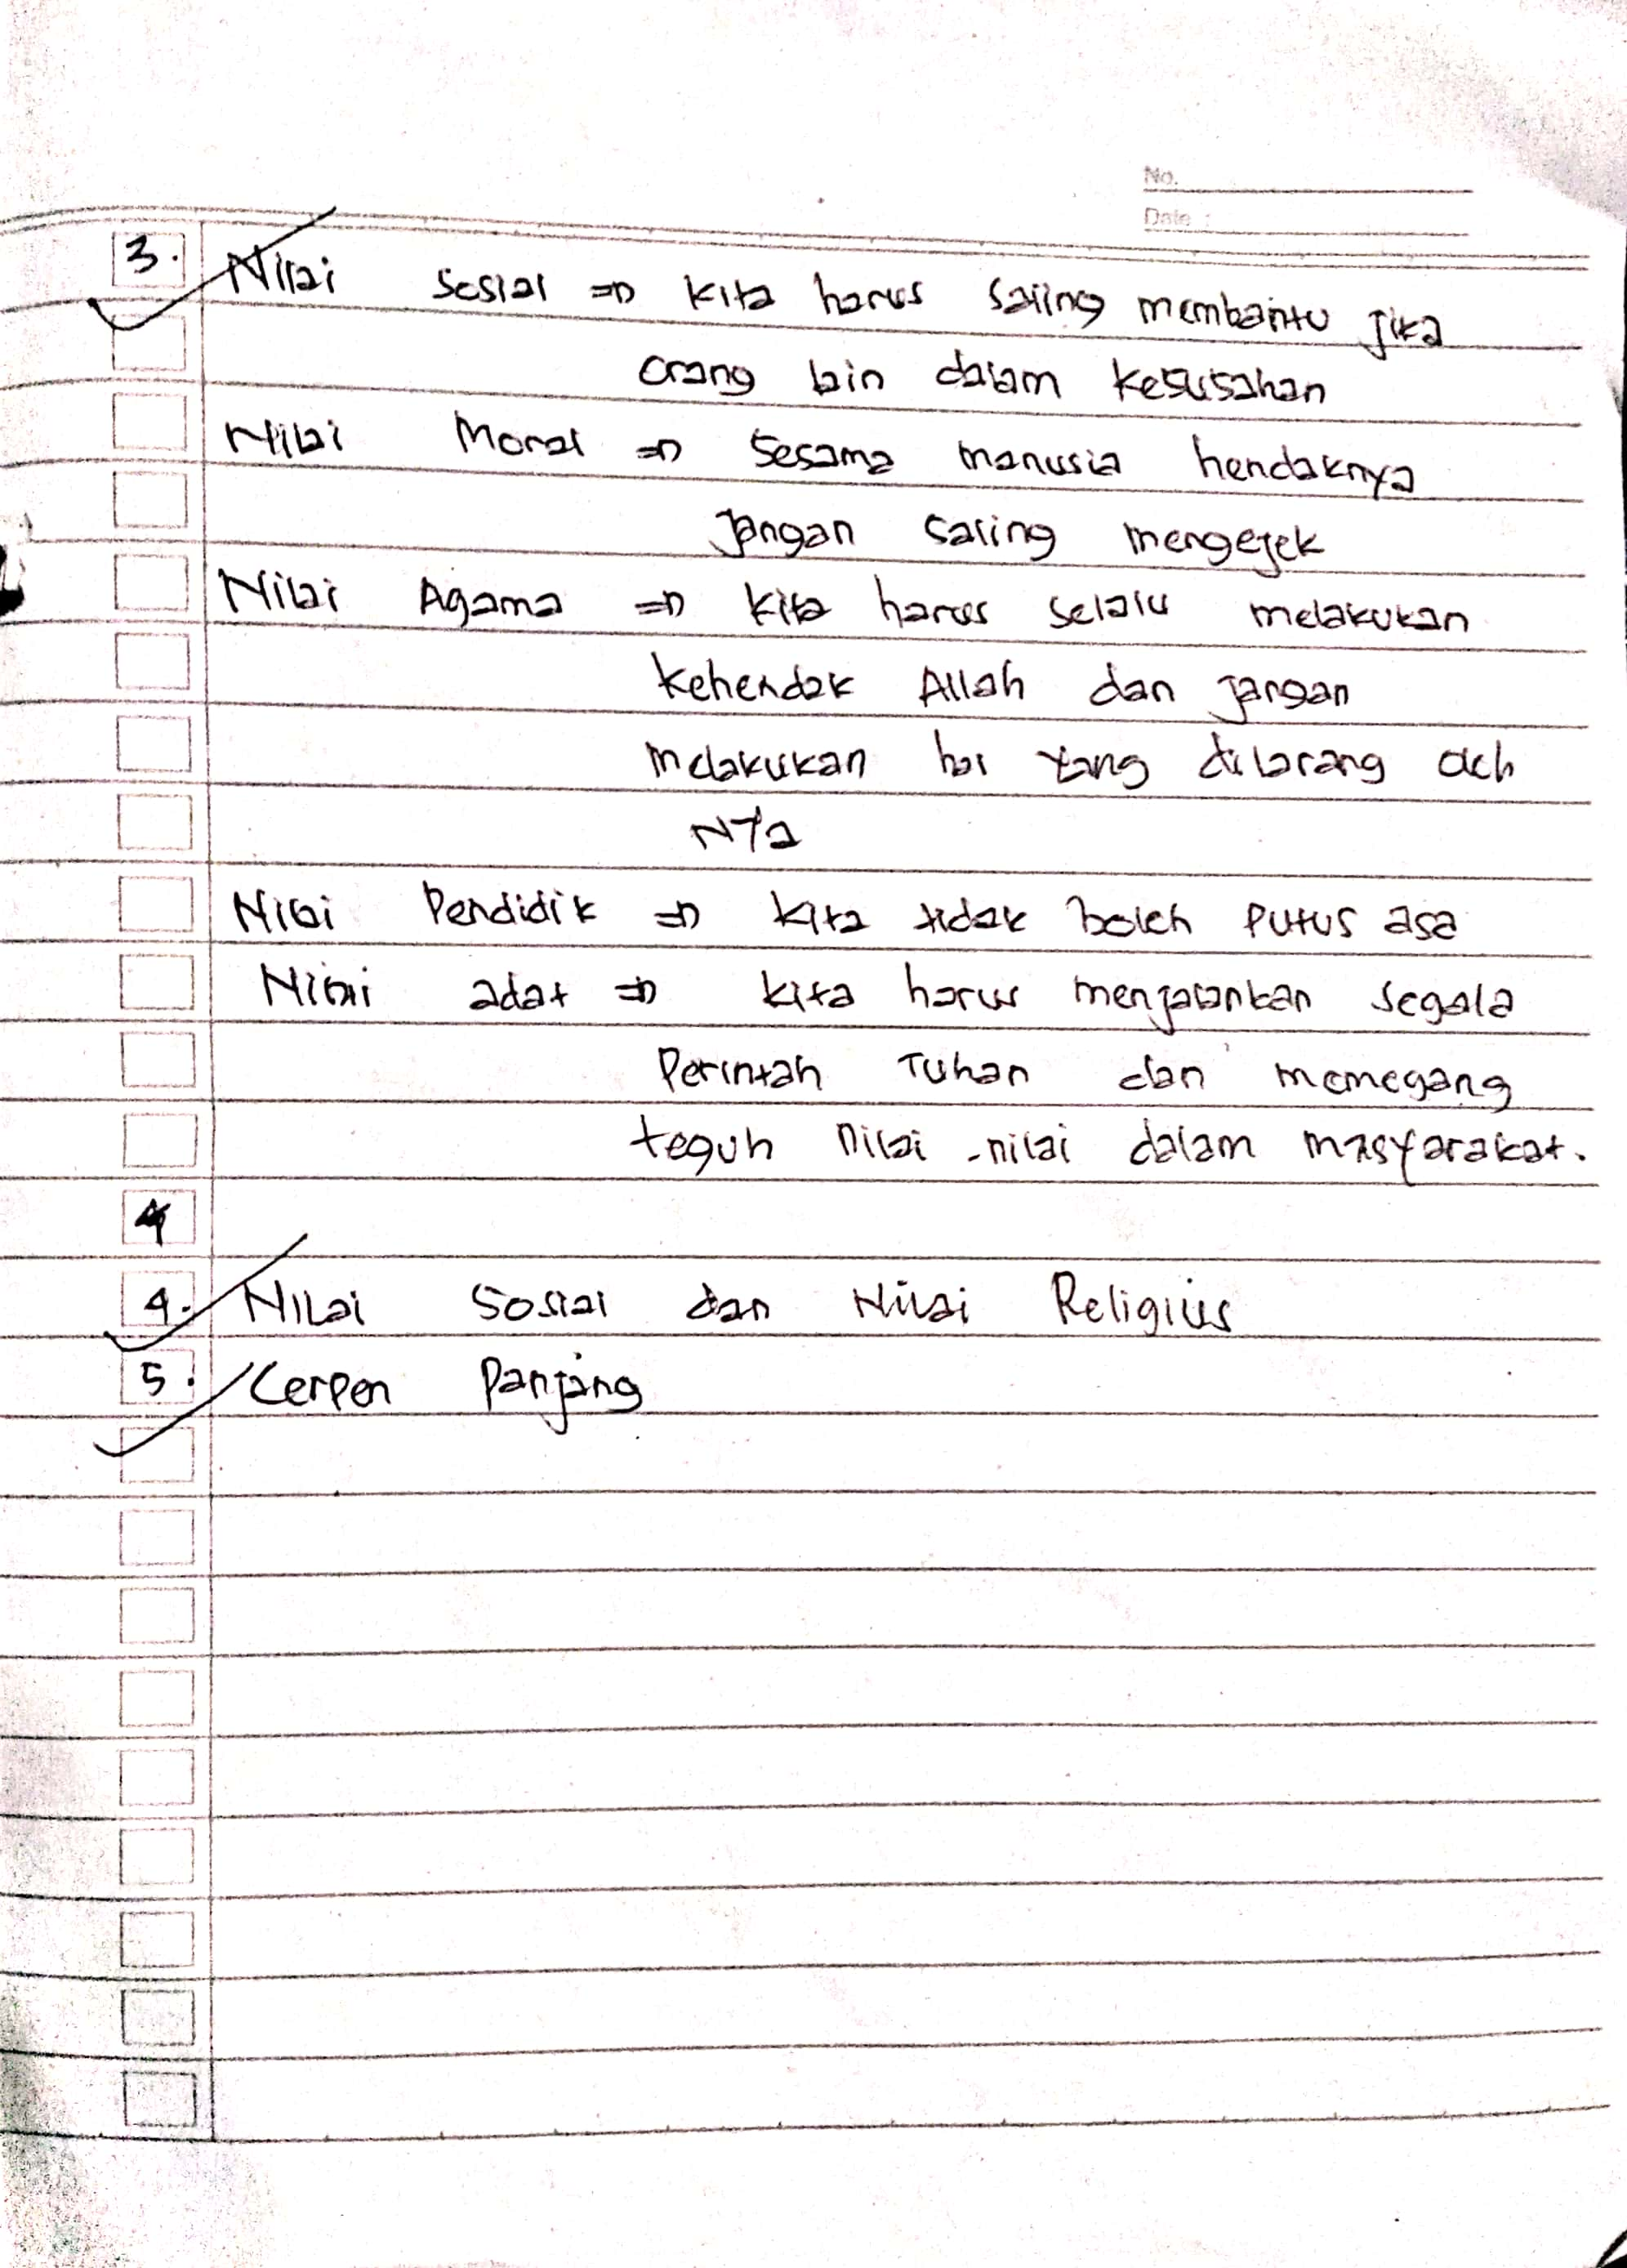 No.
Date :
3. Nilai Sosial => Kita harus saling membantu jika
orang lain dalam kesusahan
Nilai Moral => Sesama manusia hendaknya
Jangan saling mengejek
Nilai Agama => Kita harus selalu melakukan
kehendak Allah dan jangan
melakukan hal yang dilarang oleh
NYa
Nilai Pendidik => Kita tidak boleh Putus asa
Nilai adat => kita harus menjalankan segala
Perintah Tuhan dan memegang
teguh nilai-nilai dalam masyarakat.
4
4. Nilai Sosial dan Nilai Religius
5. Cerpen Panjang